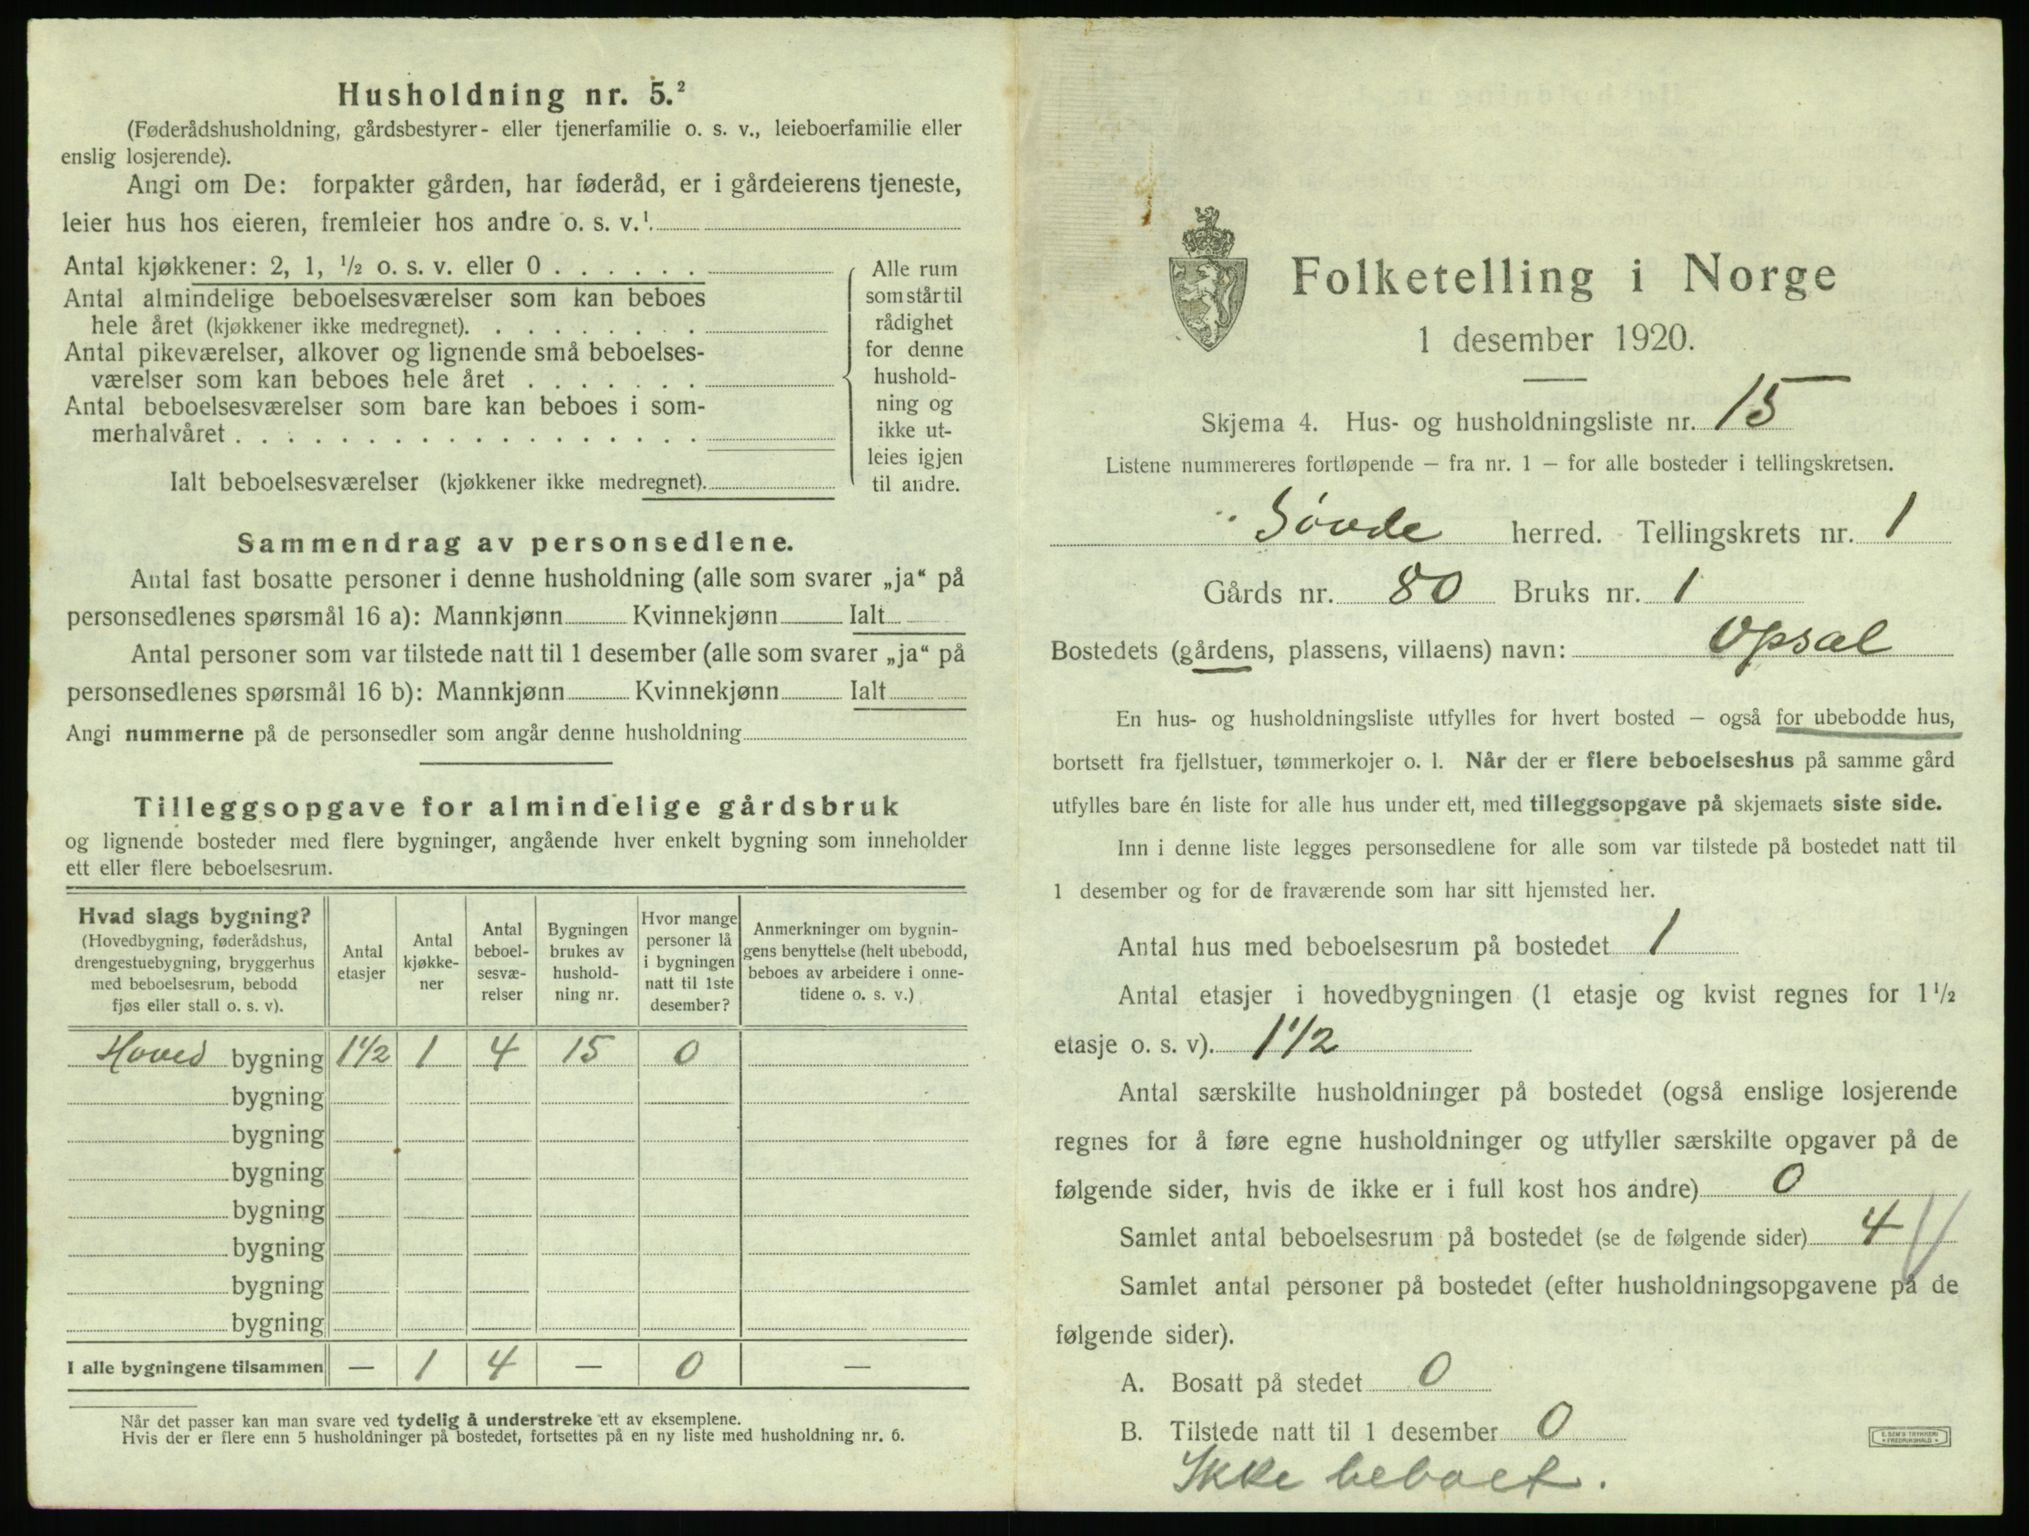 Husholdning nr. 5.²
(Føderådshusholdning, gårdsbestyrer- eller tjenerfamilie o. s. v., leieboerfamilie eller
enslig losjerende).
Angi om De: forpakter gården, har føderåd, er i gårdeierens tjeneste,
leier hus hos eieren, fremleier hos andre o. s. v.¹
Antal kjøkkener: 2, 1, ½ o. s. v. eller 0 . . . . . .
Antal almindelige beboelsesværelser som kan beboes
hele året (kjøkkener ikke medregnet). . . . . . . . .
Antal pikeværelser, alkover og lignende små beboelses-
værelser som kan beboes hele året . . . . . . .
Antal beboelsesværelser som bare kan beboes i som-
merhalvåret . . . . . . . . . . . . . . . . . .
Ialt beboelsesværelser (kjøkkener ikke medregnet).
Alle rum
som står til
rådighet
for denne
hushold-
ning og
ikke ut-
leies igjen
til andre.
Sammendrag av personsedlene.
Antal fast bosatte personer i denne husholdning (alle som svarer „ja“ på
personsedlenes spørsmål 16 a): Mannkjønn Kvinnekjønn Ialt
Antal personer som var tilstede natt til 1 desember (alle som svarer „ja“ på
personsedlenes spørsmål 16 b): Mannkjønn Kvinnekjønn Ialt
Angi nummerne på de personsedler som angår denne husholdning
Tilleggsopgave for almindelige gårdsbruk
og lignende bosteder med flere bygninger, angående hver enkelt bygning som inneholder
ett eller flere beboelsesrum.
Hvad slags bygning?
(Hovedbygning, føderådshus,
drengestuebygning, bryggerhus
med beboelsesrum, bebodd
fjøs eller stall o. s. v).
Antal
etasjer
Antal
kjøkke-
ner
Antal
beboel-
sesvæ-
relser
Bygningen
brukes av
hushold-
ning nr.
Hvor mange
personer lå
i bygningen
natt til 1ste
desember?
Anmerkninger om bygnin-
gens benyttelse (helt ubebodd,
beboes av arbeidere i onne-
tidene o. s. v.)
Hoved bygning 1 1/2 1 4 15 0
bygning
bygning
bygning
bygning
bygning
bygning
bygning
I alle bygningene tilsammen — 1 4 — 0 —
Når det passer kan man svare ved tydelig å understreke ett av eksemplene.
Hvis der er flere enn 5 husholdninger på bostedet, fortsettes på en ny liste med husholdning nr. 6.
Folketelling i Norge
1 desember 1920.
Skjema 4. Hus- og husholdningsliste nr. 15
Listene nummereres fortløpende – fra nr. 1 – for alle bosteder i tellingskretsen.
Søvde herred. Tellingskrets nr. 1
Gårds nr. 80 Bruks nr. 1
Bostedets (gårdens, plassens, villaens) navn: Opsal
En hus- og husholdningsliste utfylles for hvert bosted – også for ubebodde hus,
bortsett fra fjellstuer, tømmerkojer o. l. Når der er flere beboelseshus på samme gård
utfylles bare én liste for alle hus under ett, med tilleggsopgave på skjemaets siste side.
Inn i denne liste legges personsedlene for alle som var tilstede på bostedet natt til
1 desember og for de fraværende som har sitt hjemsted her.
Antal hus med beboelsesrum på bostedet 1
Antal etasjer i hovedbygningen (1 etasje og kvist regnes for 1½
etasje o. s. v). 1 1/2
Antal særskilte husholdninger på bostedet (også enslige losjerende
regnes for å føre egne husholdninger og utfyller særskilte opgaver på de
følgende sider, hvis de ikke er i full kost hos andre) 0
Samlet antal beboelsesrum på bostedet (se de følgende sider) 4
Samlet antal personer på bostedet (efter husholdningsopgavene på de
følgende sider).
A. Bosatt på stedet 0
B. Tilstede natt til 1 desember 0
E. SEM'S TRYKKERI
FREDRIKSHALD
Ikke beboet.